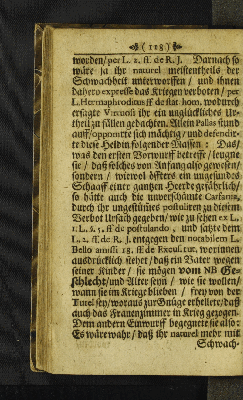 (118)
worden/ per L. 2. ff. de R. J. Darnach so
wäre ja ihr naturel meistentheils der
Schwachheit unterworffen / und ihnen
dahero expresse das Kriegen verboten / per
L. Hermaphroditus ff. de stat. hom. wodurch
ersagte Virtuosi ihr ein unglückliches Ur-
theil zu fällen gedachten. Allein Pallas stund
auff/ opponirte sich mächtig / und defendir-
te diese Heldin folgender Massen : Das/
was den ersten Vorwurff betreffe / leugne
sie / daß solches von Anfang also gewesen/
sondern / wiewol öffters ein ungesundes
Schaaff einer gantzen Heerde gefährlich/
so hätte auch die unverschämte Carfania,
durch ihr ungestümes postuliren zu diesem
Verbot Ursach gegeben/ wie zu sehen ex L.
1. L. 2. 5. ff. de postulando, und satzte dem
L. 2. ff. de R. J. entgegen den notabilem L.
Bello amissi 18. ff. de Excus. tut. worinnen
ausdrücklich stehet/ daß ein Vater wegen
seiner Kinder / sie mögen vom NB Ge-
schlecht/ und Alter seyn / wie sie wollen/
wann sie im Kriege blieben / frey von der
Tutel sey/ woraus zur Gnüge erhellete/ daß
auch das Frauenzimmer in Krieg gezogen.
Dem andern Einwurff begegnete sie also:
Es wäre wahr / daß ihr naturel mehr mit
Schwach-